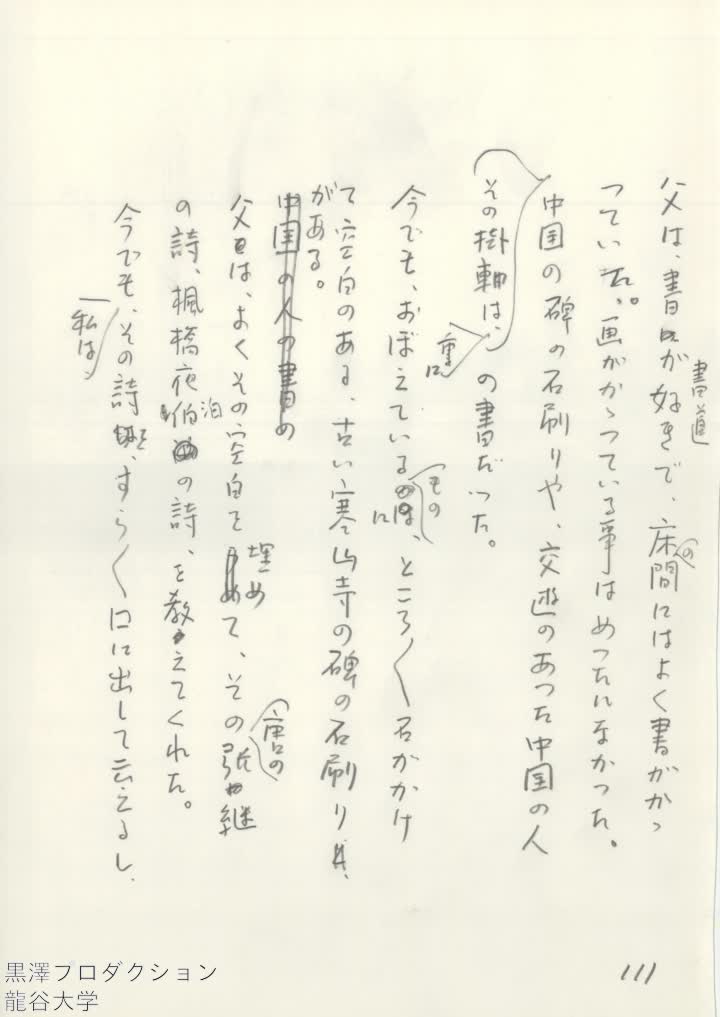 父は、書が好きで、床の間にはよく書がかゝ
書道
つていた。画がかゝつている事はめつたになかつた。
中国の碑の石刷りや、交遊のあつた中国の人
その掛軸は、の書だつた。
重に
今でも、おぼえているものに、ところ〲石がかけ
て空白のある、古い寒山寺の碑の石刷り
がある。
中国の人の書め
父は、よくその空白を埋めて、その唐の張継
の詩、楓橋夜泊の詩、を教えてくれた。
今でも、その詩を、すら〱口に出して云えるし、
私は、
111
黒澤プロダクション
龍谷大学